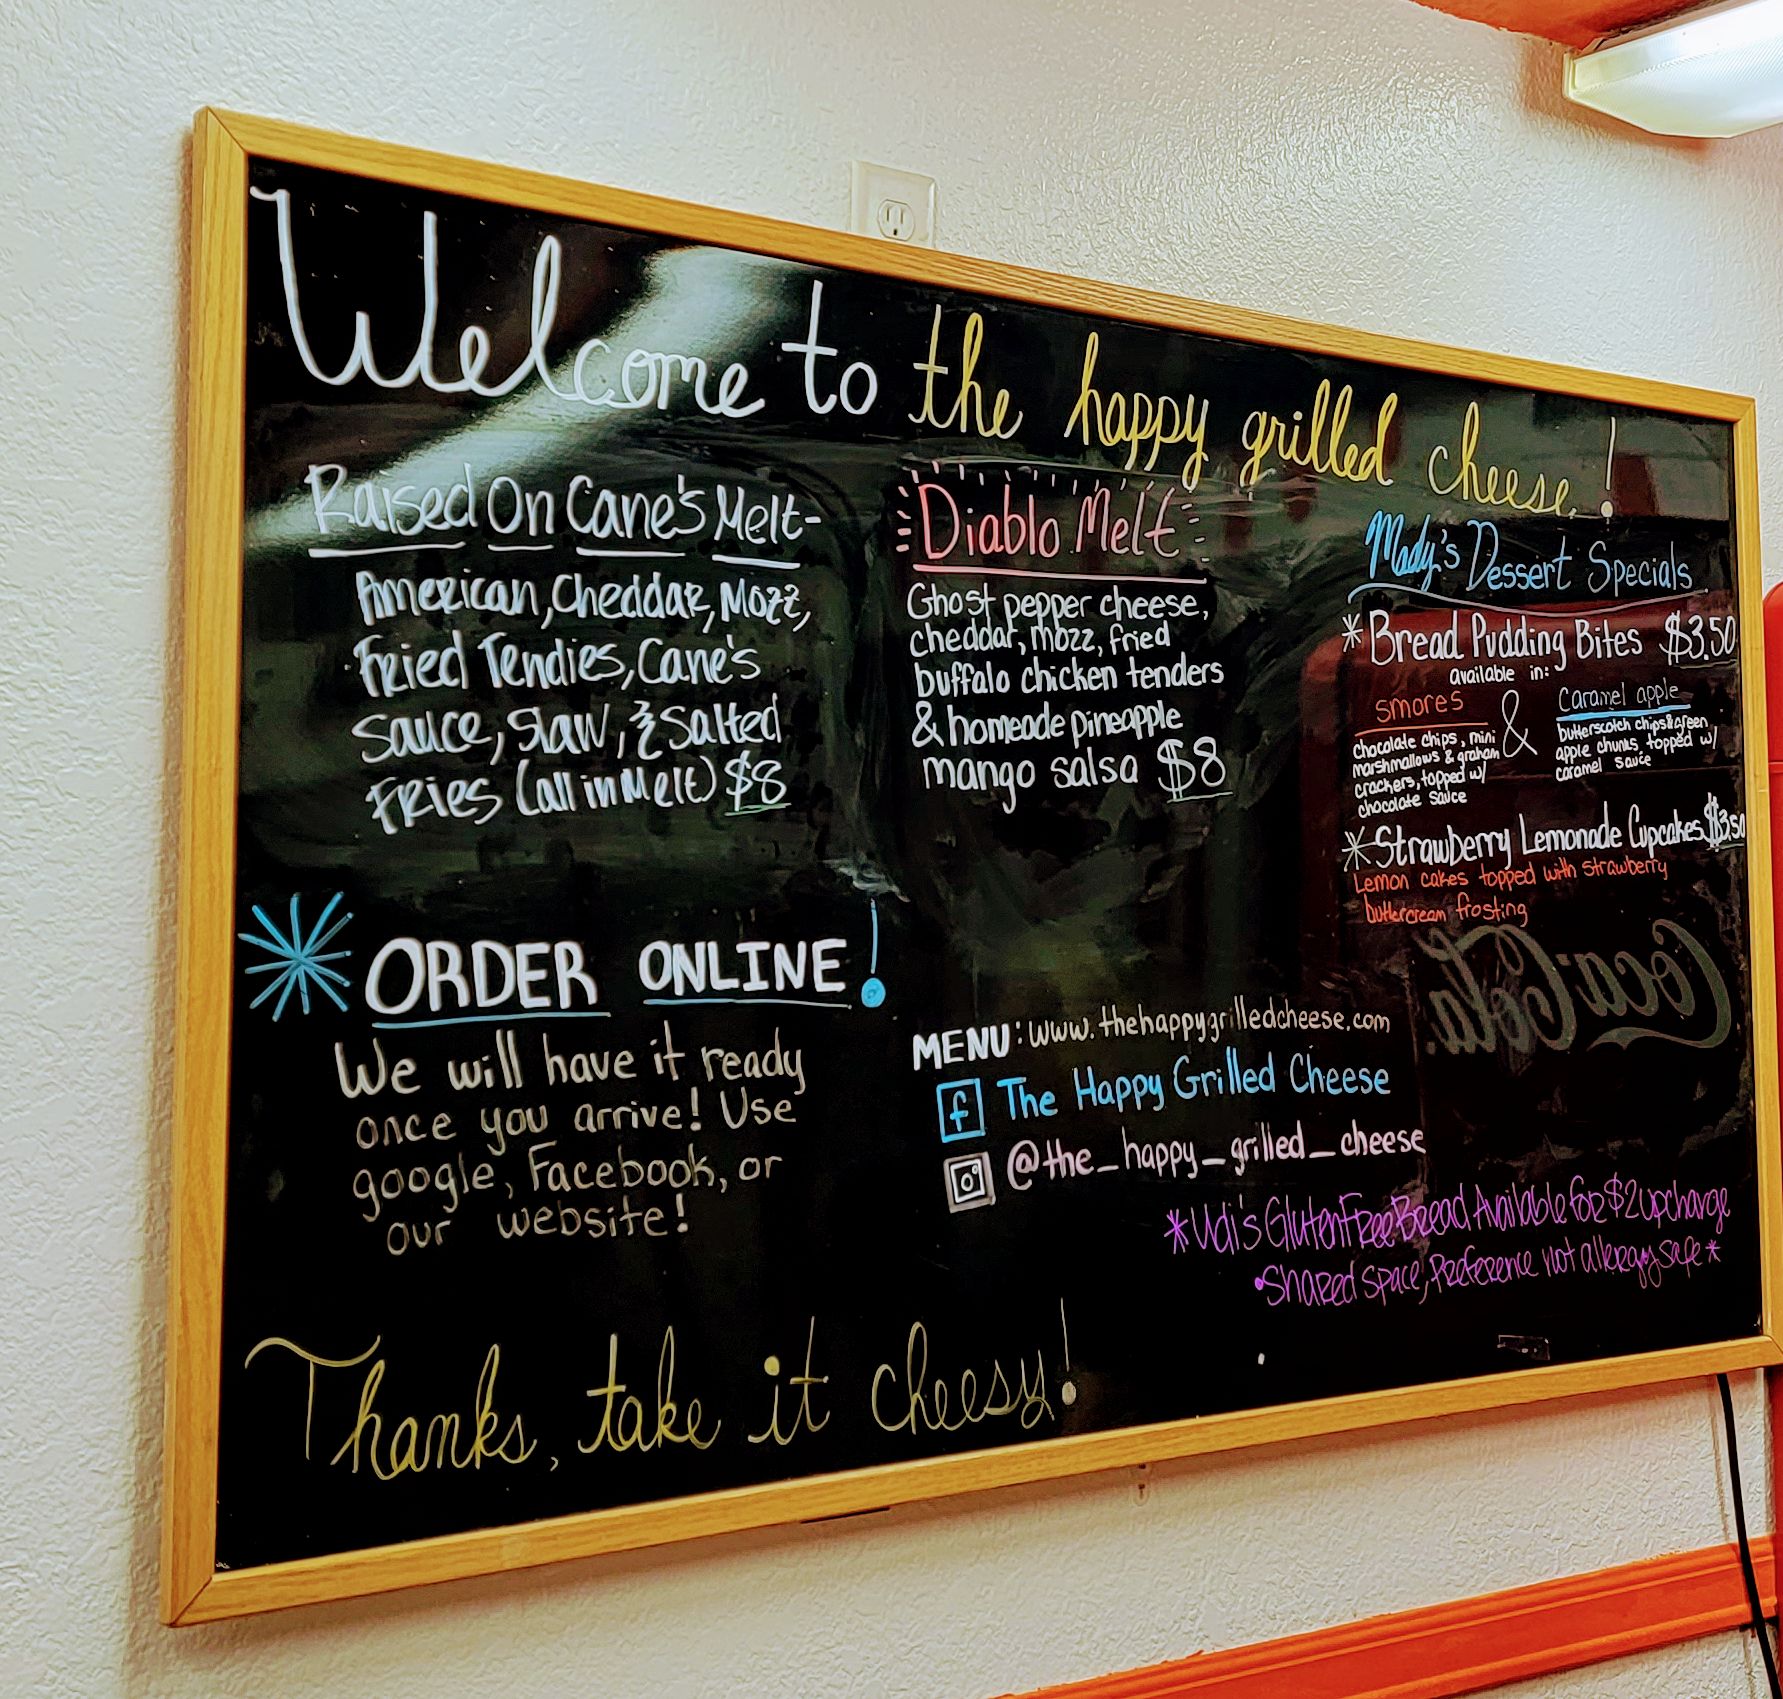 Welcome to the happy grilled cheese!
Raised On Cane's Melt-
American, Cheddar, Mozz,
Fried Tendies, Cane's
Sauce, Slaw, & Salted
Fries (all in Melt) $8
Diablo Melt
Ghost pepper cheese,
cheddar, mozz, fried
buffalo chicken tenders
& homeade pineapple
mango salsa $8
Mady's Dessert Specials
* Bread Pudding Bites $3.50
available in:
smores
chocolate chips, mini
marshmallows & graham
crackers, topped w/
chocolate sauce
&
Caramel apple
butterscotch chips & green
apple chunks, topped w/
caramel sauce
* Strawberry Lemonade Cupcakes $3.50
Lemon cakes topped with strawberry
buttercream frosting
Coca-Cola
* ORDER ONLINE!
We will have it ready
once you arrive! Use
google, Facebook, or
our website!
MENU: www.thehappygrilledcheese.com
f The Happy Grilled Cheese
@the_happy_grilled_cheese
*Udi's Gluten Free Bread Available for $2 upcharge
•Shared space, Preference not allergy safe*
Thanks, take it cheesy!